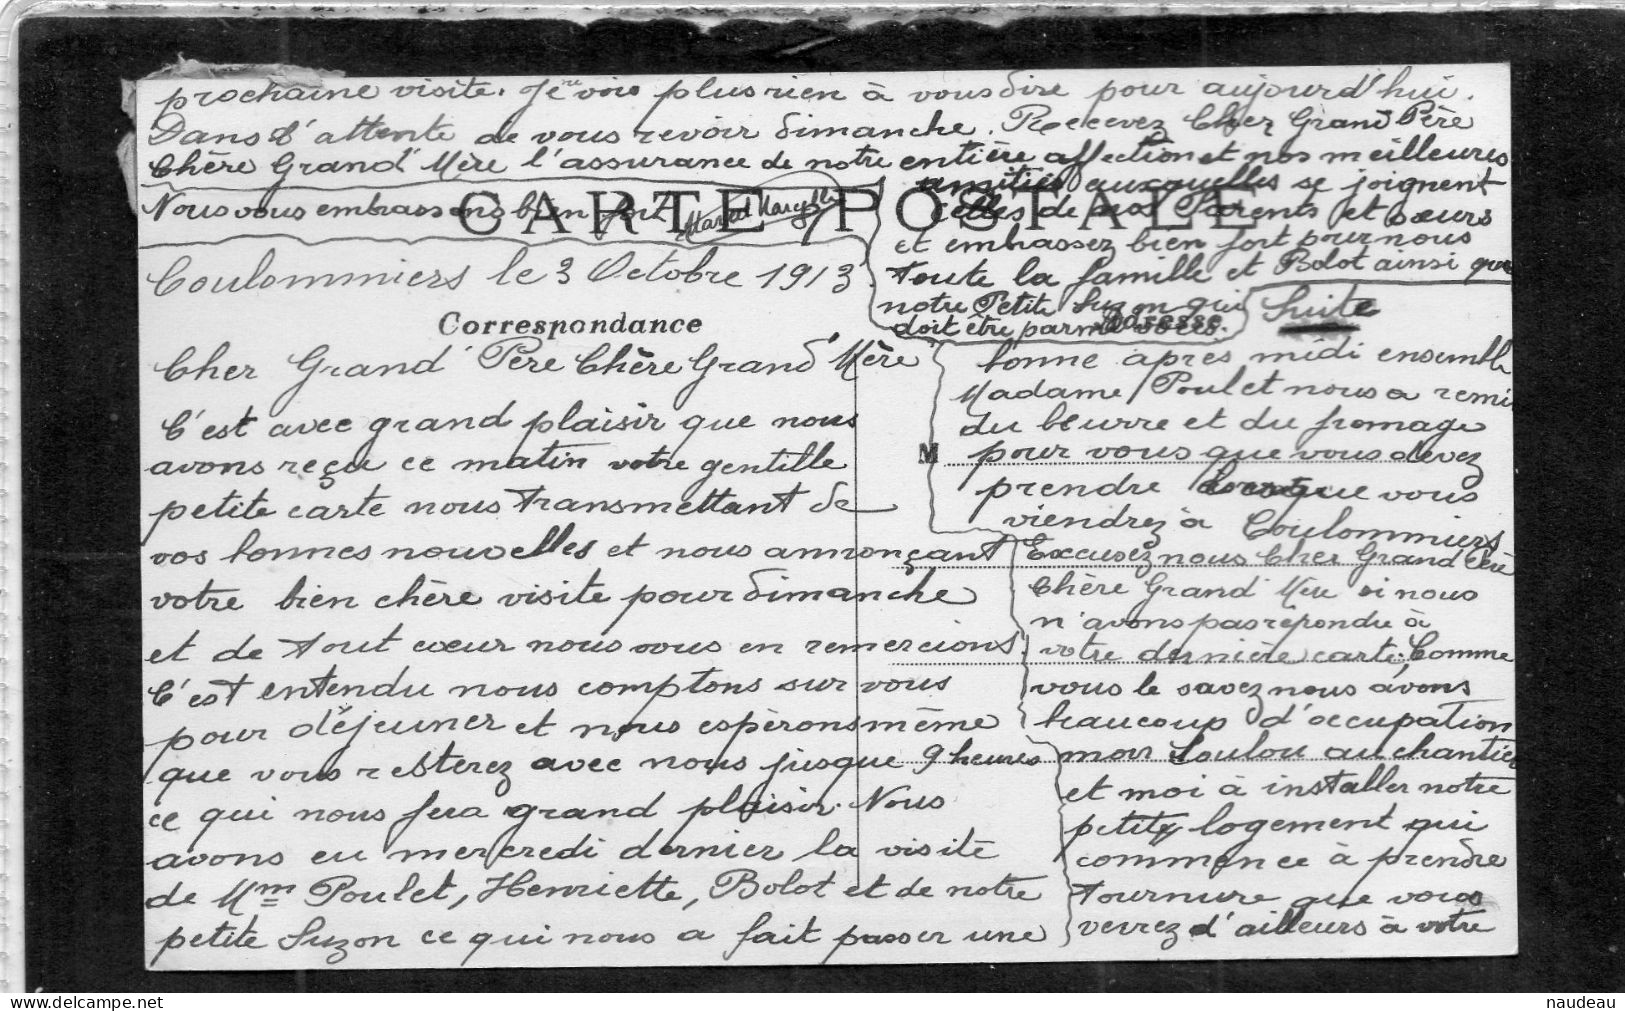 Coulommiers le 3 Octobre 1913
Correspondance
Cher Grand Père Chère Grand'Mère
C'est avec grand plaisir que nous
avons reçu ce matin votre gentille
petite carte nous transmettant de
vos bonnes nouvelles et nous annonçant
votre bien chère visite pour dimanche
et de tout cœur nous vous en remercions.
C'est entendu nous comptons sur vous
pour déjeuner et nous espèrons même
que vous resterez avec nous jusque 9 heures
ce qui nous fera grand plaisir. Nous
avons eu mercredi dernier la visite
de Mme Poulet, Henriette, Bolot et de notre
petite Suzon ce qui nous a fait passer une
Suite
bonne après midi ensembl
Madame Poulet nous a remi
du beurre et du fromage
M pour vous que vous devez
prendre lorsque vous
viendrez à Coulommiers
Excusez nous Cher Grand Père
Chère Grand'Mère si nous
n'avons pas répondu à
votre dernière carte; Comme
vous le savez nous avons
beaucoup d'occupation
mon Loulou au chantier
et moi à installer notre
petit logement qui
commence à prendre
tournure que vous
verrez d'ailleurs à votre
prochaine visite. Je ne vois plus rien à vous dire pour aujourd'hui.
Dans l'attente de vous revoir dimanche. Recevez Cher Grand Père
Chère Grand'Mère l'assurance de notre entière affection et nos meilleures
amitiés auxquelles se joignent
celles de nos Parents et sœurs
et embrassez bien fort pour nous
toute la famille et Bolot ainsi que
notre Petite Suzon qui
doit être parmi vous.
Nous vous embrassons bien fort
CARTE POSTALE
Adresse
naudeau